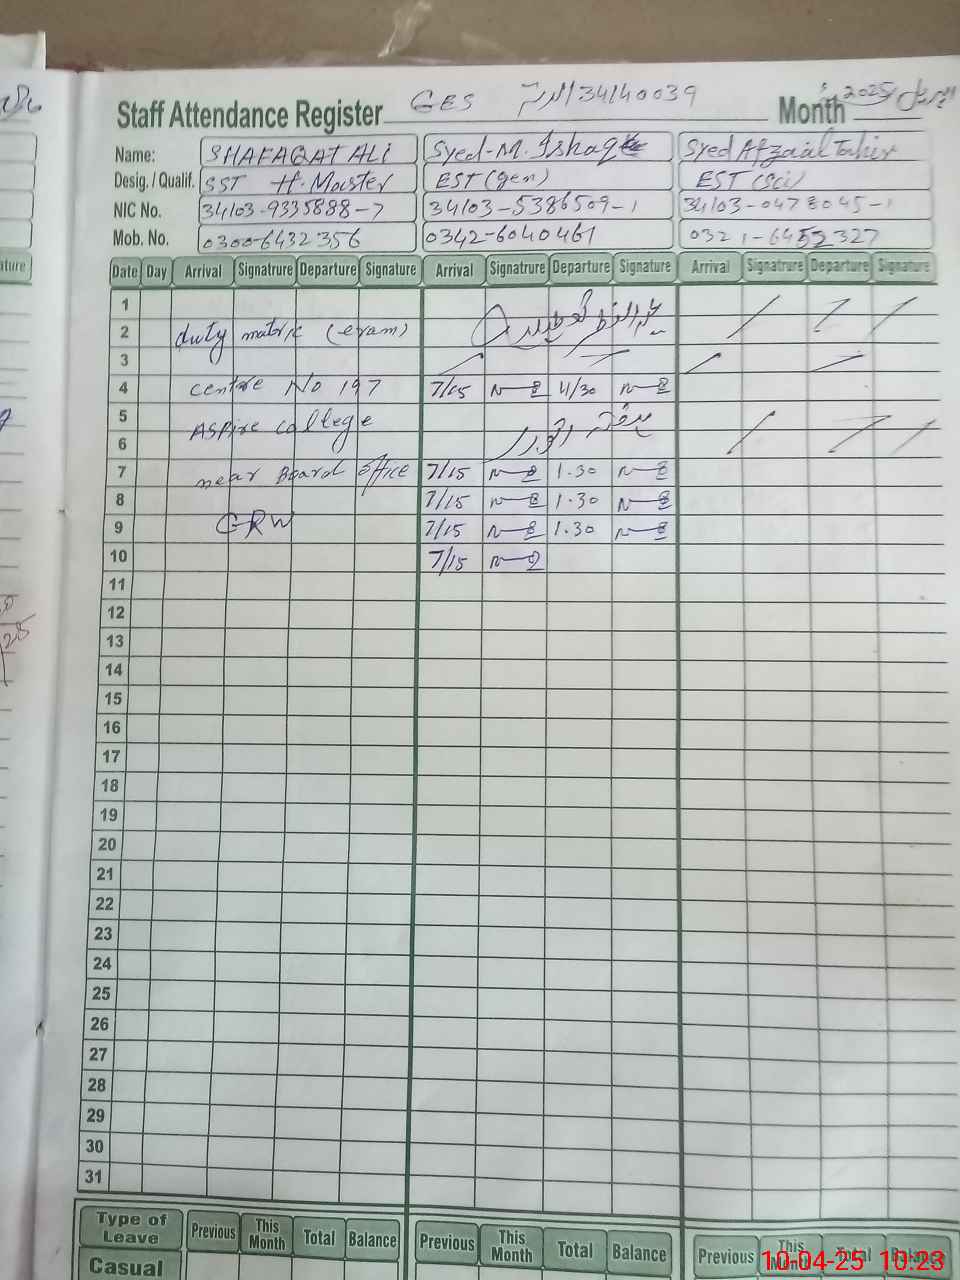 Staff Attendance Register GES 34140039 Month 2025
Name: SHAFAQAT ALI Syed-M. Ishaq Syed Afzaal Tahir
Desig. / Qualif. SST H. Master EST (gen) EST (Sci)
NIC No. 34103-9335888-7 34103-5386509-1 34103-0478045-1
Mob. No. 0300-6432356 0342-6040461 0321-6452327
Date Day Arrival Signatrure Departure Signature Arrival Signatrure Departure Signature Arrival Signatrure Departure Signature
1
2 duty matric (exam)
3
4 centre No 197 7/15 4/30
5 Aspire college
6
7 near Board office 7/15 1.30
8 7/15 1.30
9 GRW 7/15 1.30
10 7/15
11
12
13
14
15
16
17
18
19
20
21
22
23
24
25
26
27
28
29
30
31
Type of Leave Previous This Month Total Balance Previous This Month Total Balance Previous This Month Total Balance
Casual
10-04-25 10:23